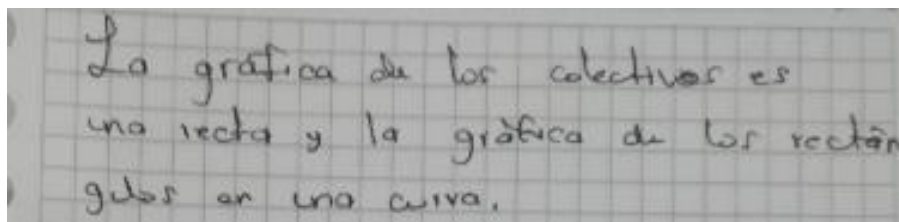 La gráfica de los colectivos es
una recta y la gráfica de los rectán
gulos en una curva.